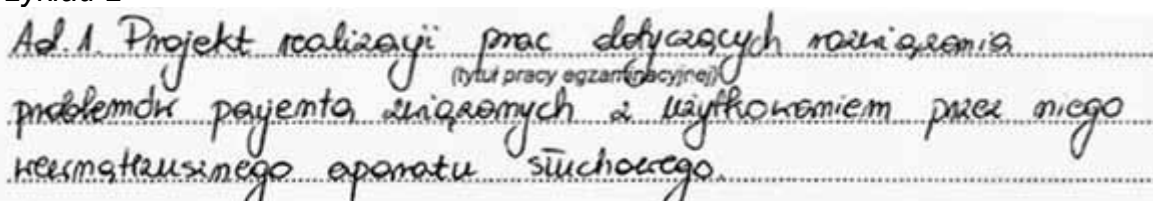 Ad. 1. Projekt realizacji prac dotyczących rozwiązania
(tytuł pracy egzaminacyjnej)
problemów pacjenta związanych z użytkowaniem przez niego
wewnątrzusznego aparatu słuchowego.